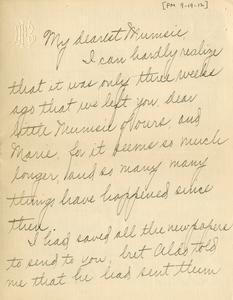 [PM 9-19-12]
My dearest Mumsie,
I can hardly realize
that it was only three weeks
ago that we left you, dear
little Mumsie of yours, and
Marie, for it seems so much
longer, and so many, many
things have happened since
then.
I had saved all the newspapers
to send to you, but Aldo told
me that he had sent them